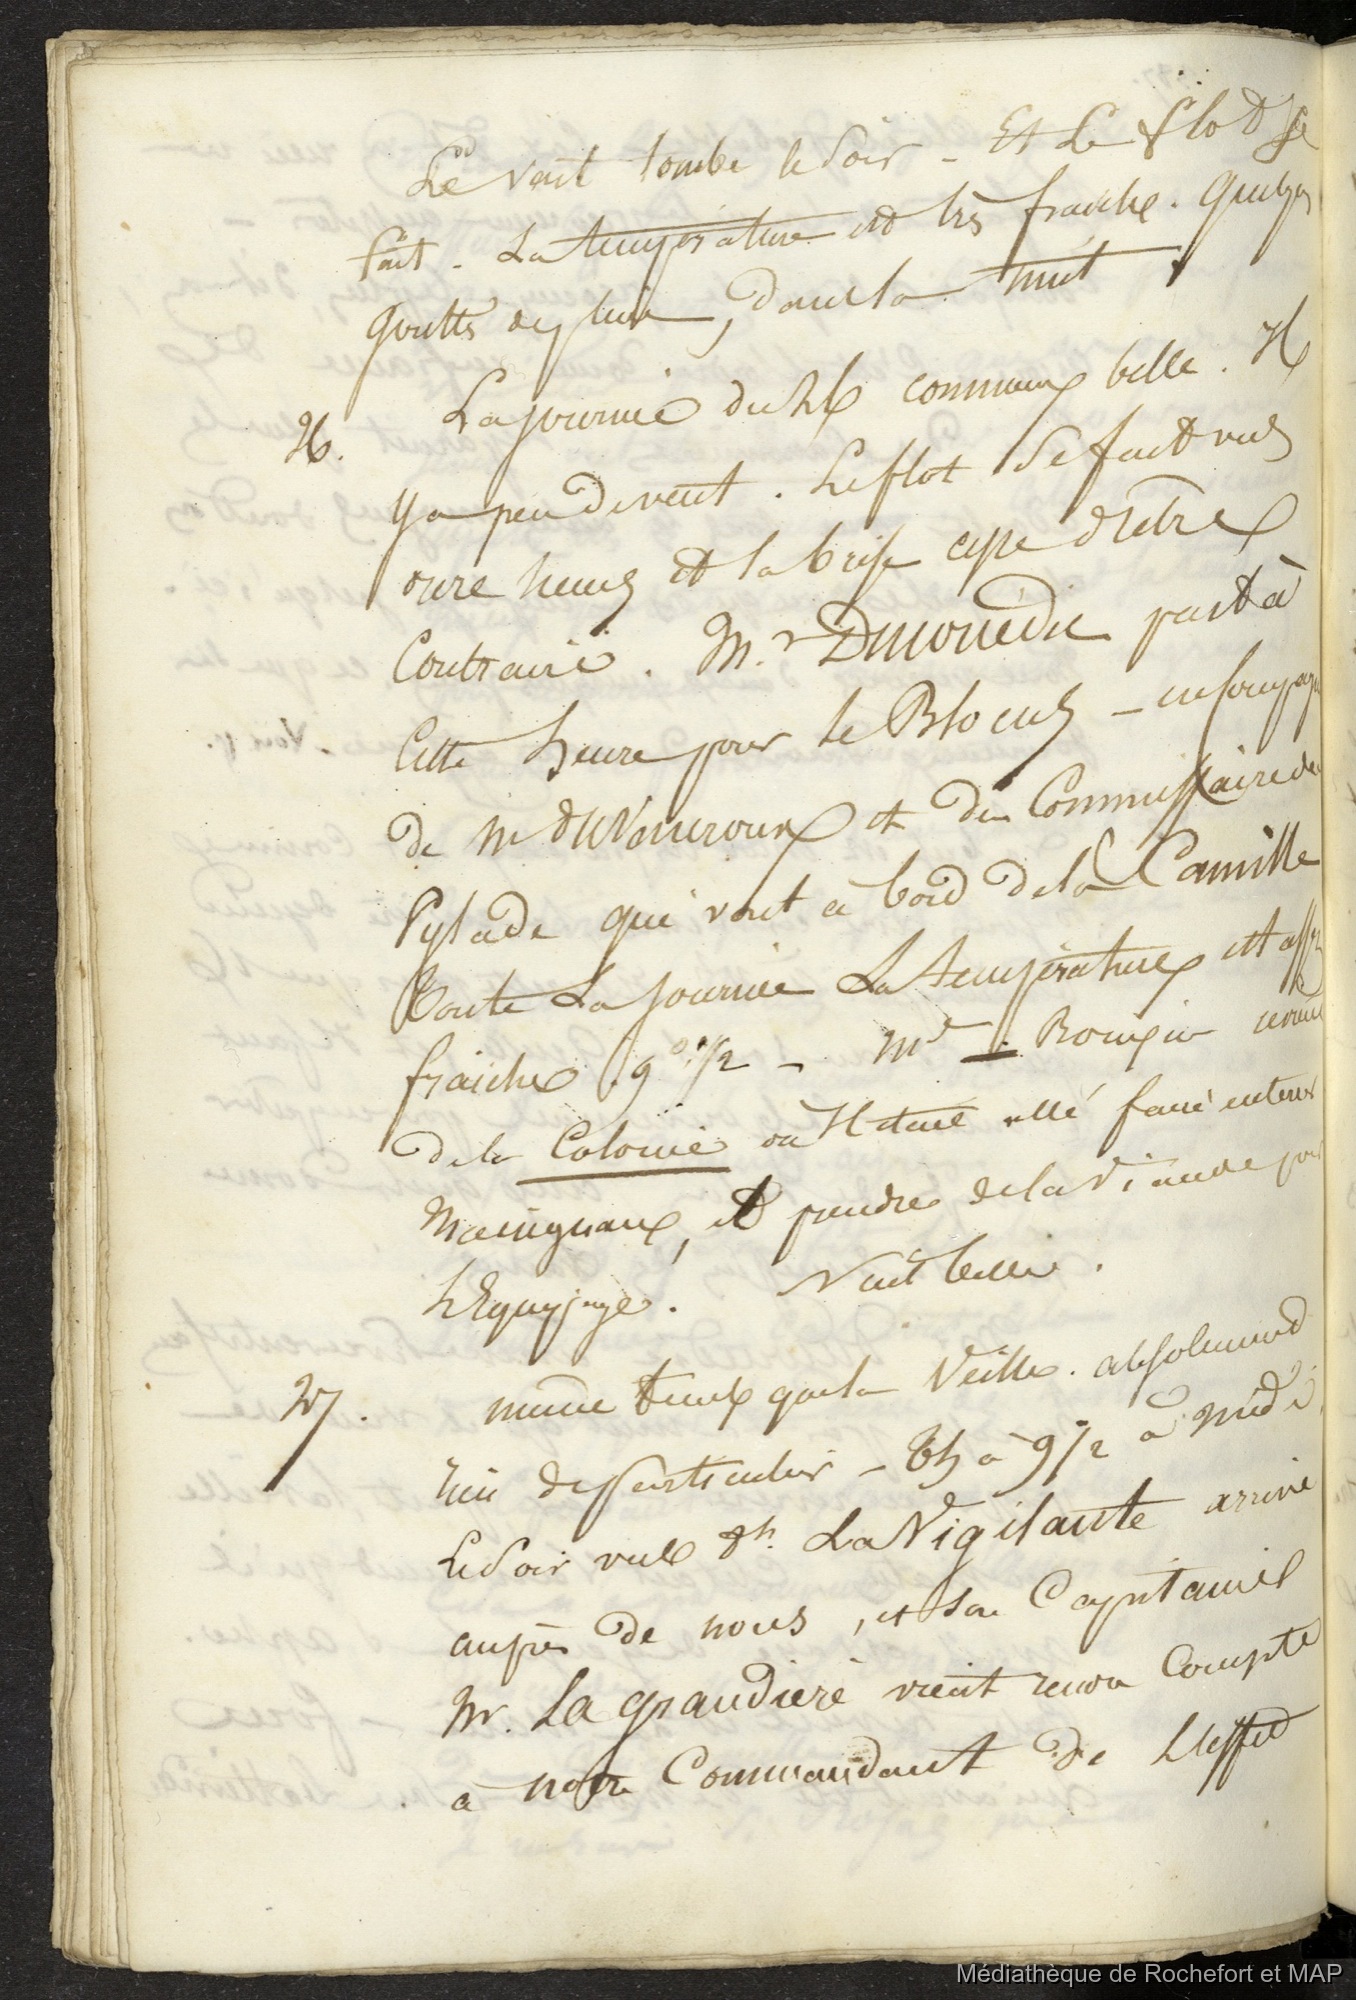 Le vent tombe le soir - Et Le flot se
fait - La température est très fraiche. quelques
gouttes de pluie, dans la nuit.
26. La journée du 26 commence belle. Il
y a peu de vent. Le flot se fait vers
onze heures et la brise cesse d'être
Contraire. Mr Dmouëdic part à
Cette heure pour le Blocus - en compagnie
de Mr et du Commissaire du
Pylade qui vont à bord de la Camille
Toute La journée La température est assez
fraiche 9° 1/2 - Mr Romain revient
de la Colonie où Il était allé faire enterrer
et prendre de la Viande pour
L'Equipage. Nuit belle.
27. même temps que la Veille. absolument
rien de particulier - Th à 9 1/2 à midi
Le Soir vers 8h. La Vigilante arrive
auprès de nous, et son Capitaine
Mr. La grandière vient rendre Compte
à notre Commandant de L'effet
Médiathèque de Rochefort et MAP